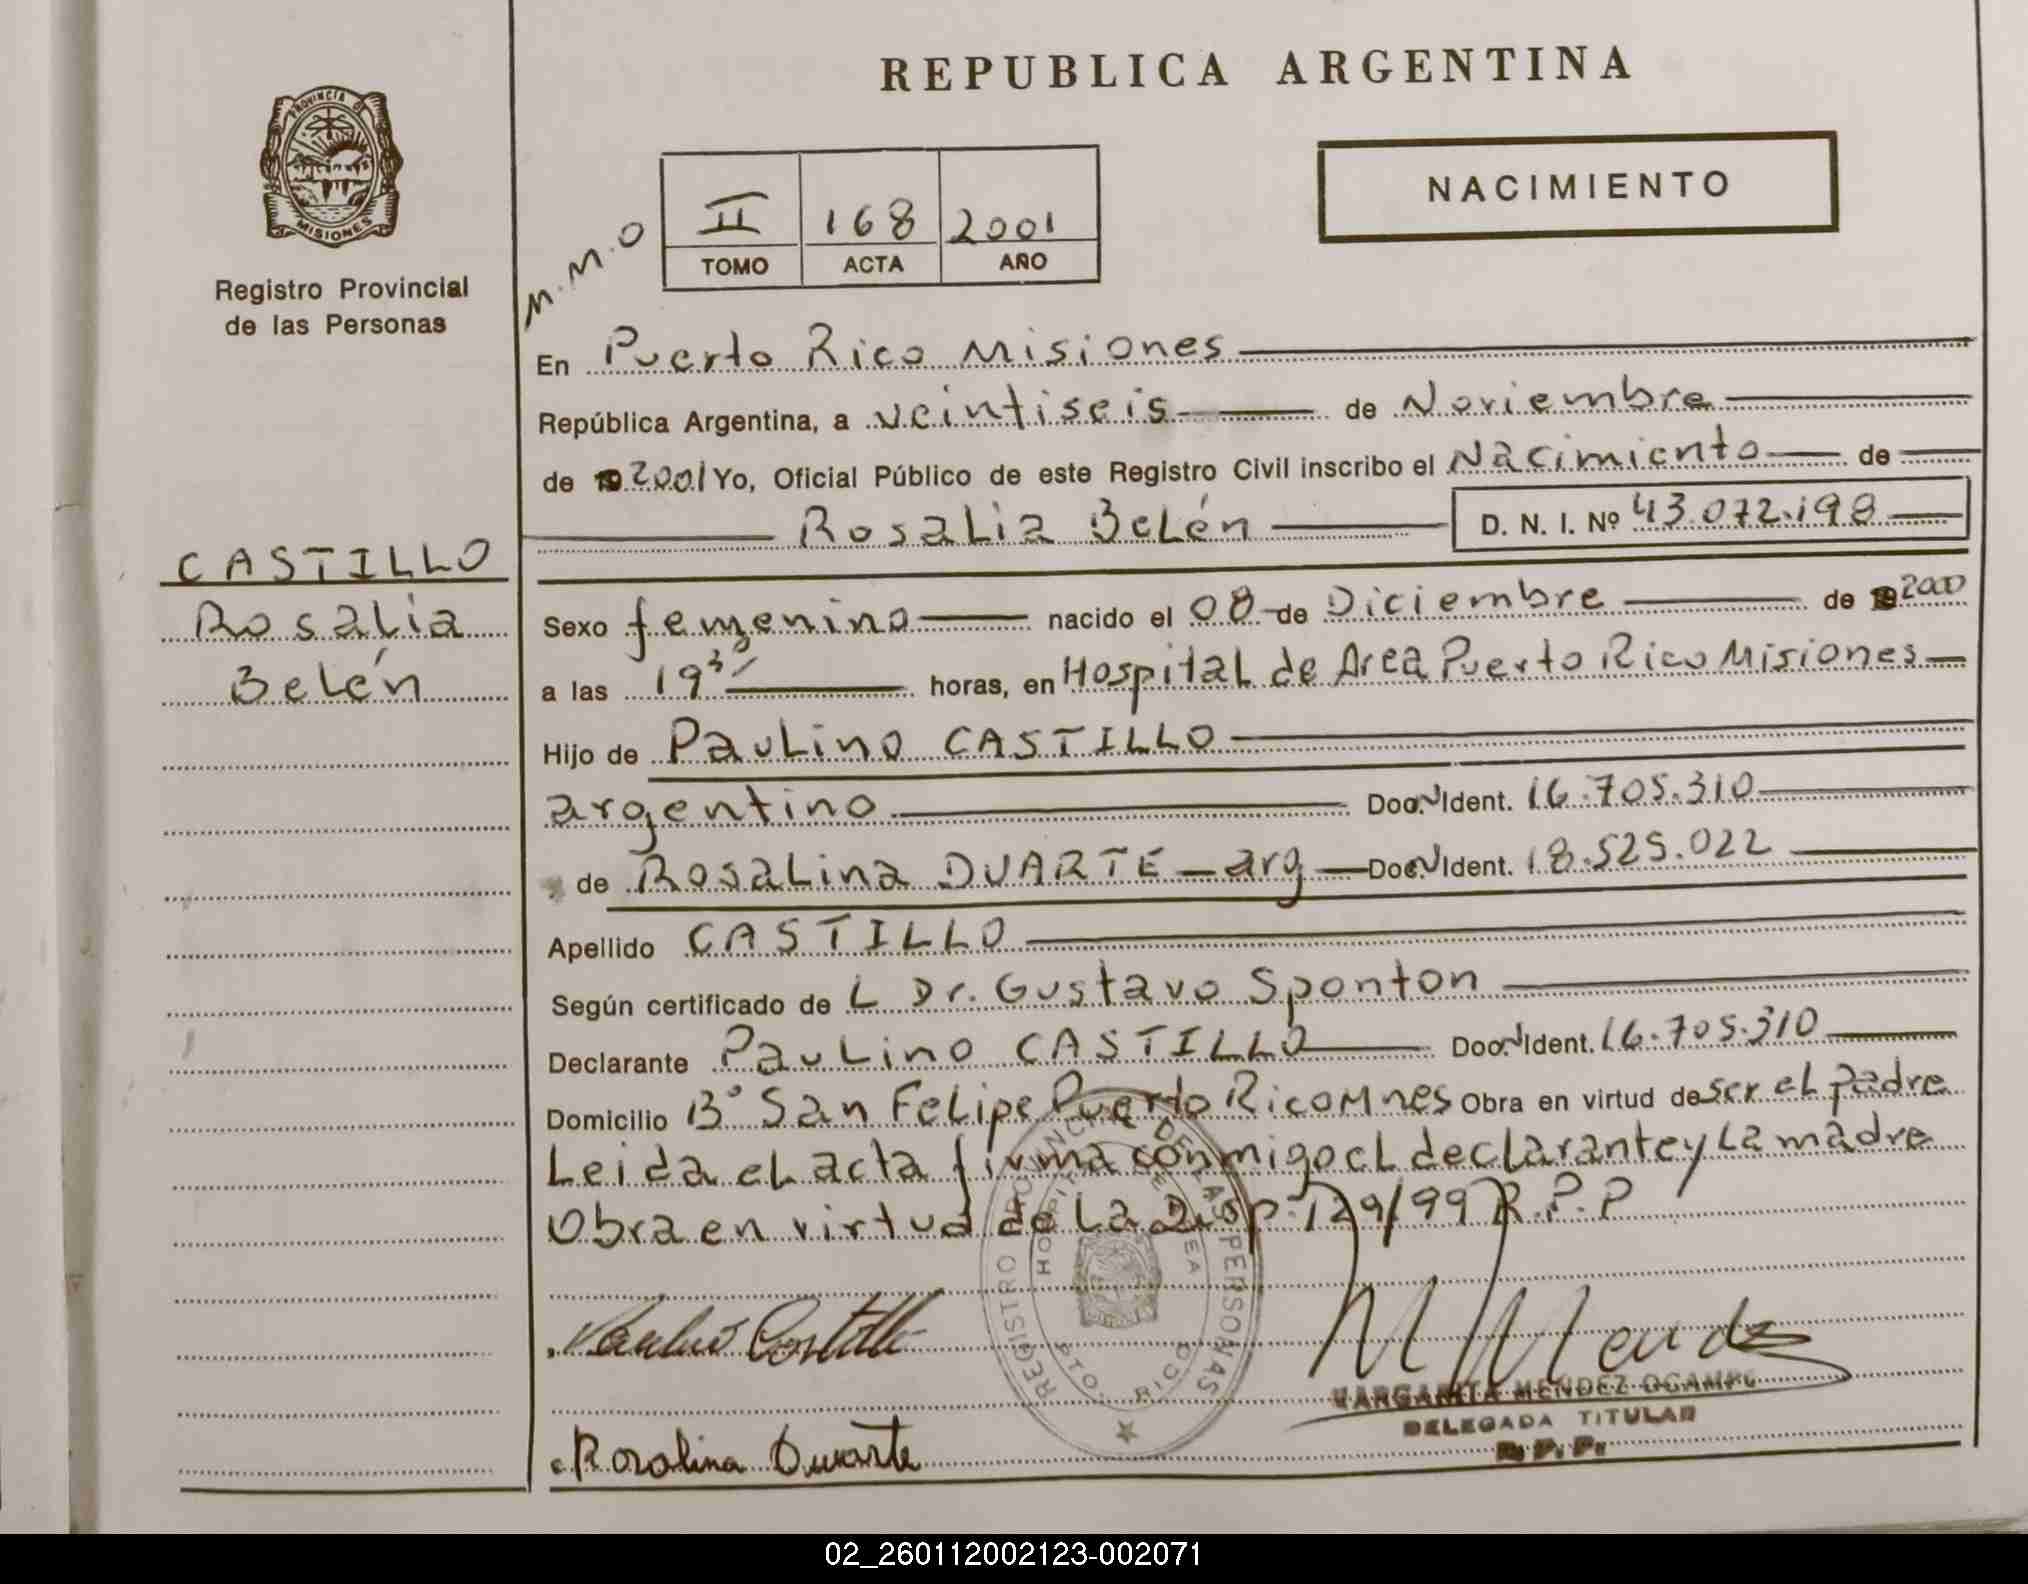 REPUBLICA ARGENTINA
PROVINCIA DE
MISIONES
Registro Provincial
de las Personas
M.M.O
II 168 2001
TOMO ACTA AÑO
NACIMIENTO
En Puerto Rico Misiones
República Argentina, a veintiseis de Noviembre
de 2001 Yo, Oficial Público de este Registro Civil inscribo el Nacimiento de
Rosalia Belén D. N. I. Nº 43.072.198
CASTILLO
Rosalia
Belén
Sexo femenino nacido el 08 de Diciembre de 2000
a las 19 3/ horas, en Hospital de Area Puerto Rico Misiones
Hijo de Paulino CASTILLO
argentino Doc. Ident. 16.705.310
de Rosalina DUARTE - arg Doc. Ident. 18.525.022
Apellido CASTILLO
Según certificado de L Dr. Gustavo Sponton
Declarante Paulino CASTILLO Doc. Ident. 16.705.310
Domicilio Bº San Felipe Puerto Rico Mnes Obra en virtud de ser el padre
Leida el acta firma conmigo el declarante y la madre
Obra en virtud de la Disp. 129/99 R.P.P
REGISTRO PROVINCIAL DE LAS PERSONAS
HOSPITAL DE AREA
PTO. RICO
Paulino Castillo
M Mendez
MARGARITA MENDEZ OCAMPO
DELEGADA TITULAR
R. P. P.
Rosalina Duarte
02_260112002123-002071